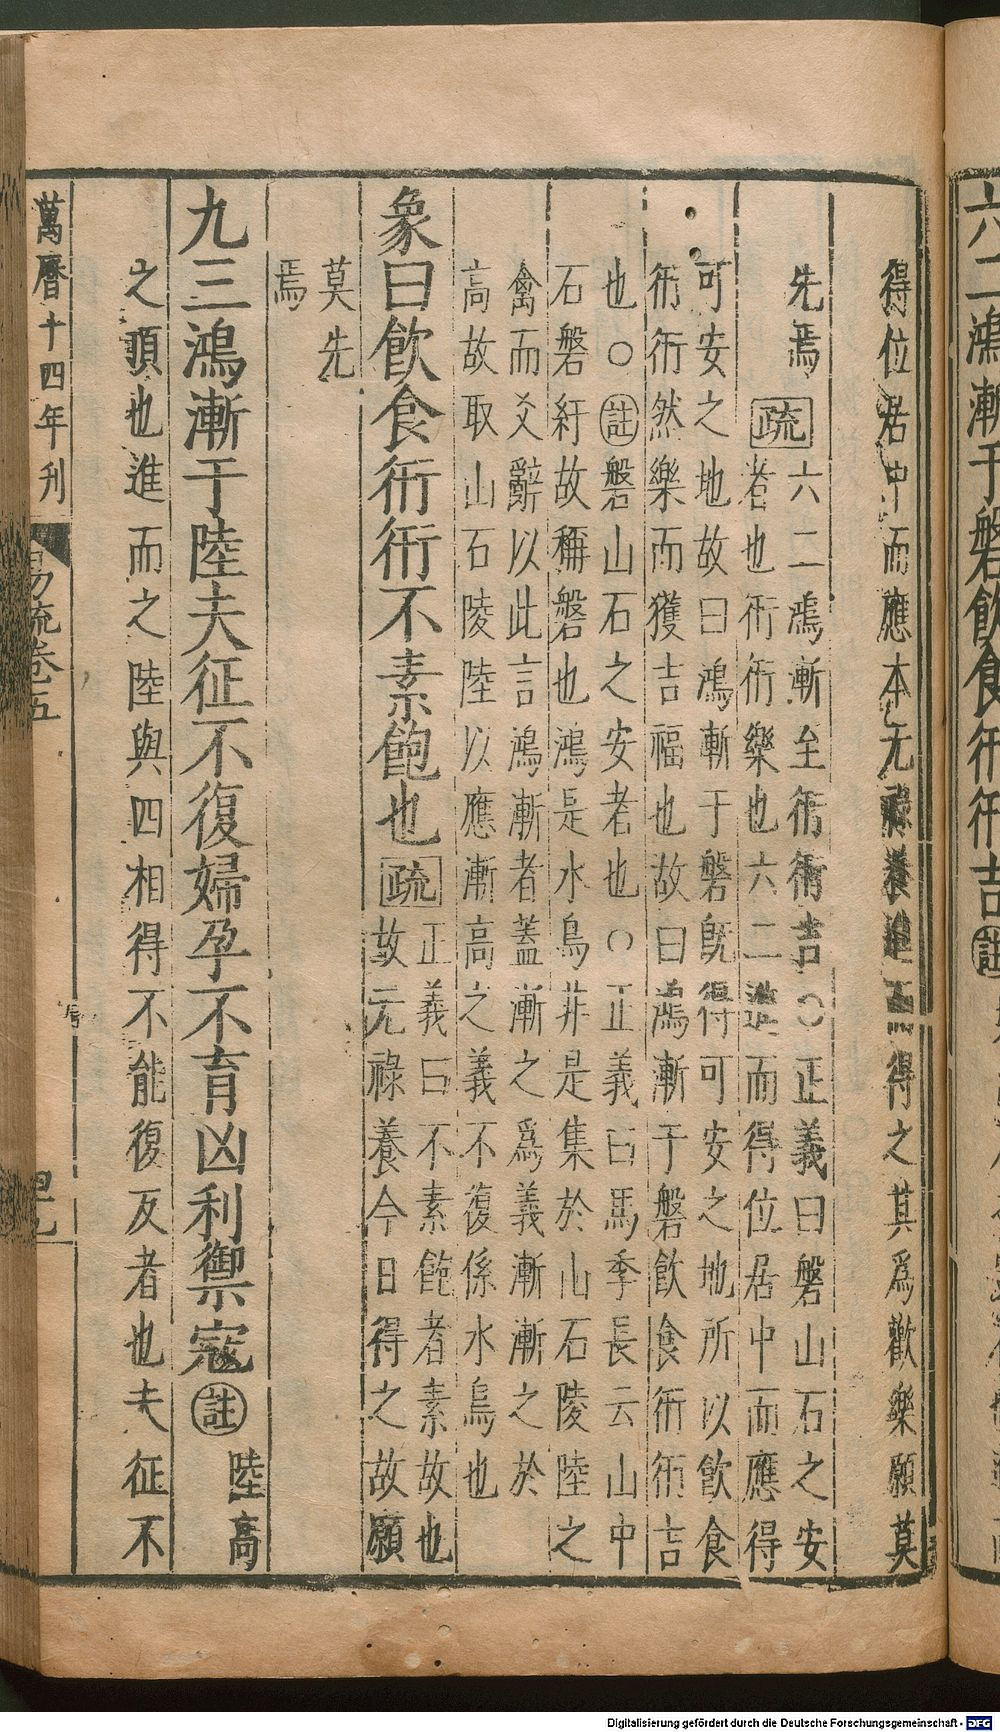 六二鴻漸于磐飲食衎衎吉註
得位居中而應本无祿養進而得之其為歡樂願莫
先焉疏六二鴻漸至衎衎吉○正義曰磐山石之安
者也衎衎樂也六二進而得位居中而應得
可安之地故曰鴻漸于磐旣得可安之地所以飲食
衎衎然樂而獲吉福也故曰鴻漸于磐飲食衎衎吉
也○註磐山石之安者也○正義曰馬季長云山中
石磐紆故稱磐也鴻是水鳥非是集於山石陵陸之
禽而爻辭以此言鴻漸者蓋漸之為義漸漸之於
高故取山石陵陸以應漸高之義不復係水鳥也
象曰飲食衎衎不素飽也疏正義曰不素飽者素故也
故无祿養今日得之故願
莫先
焉
九三鴻漸于陸夫征不復婦孕不育凶利禦寇註陸高
之頂也進而之陸與四相得不能復反者也夫征不
萬曆十四年刊
易疏卷五
四九
Digitalisierung gefördert durch die Deutsche Forschungsgemeinschaft - DFG